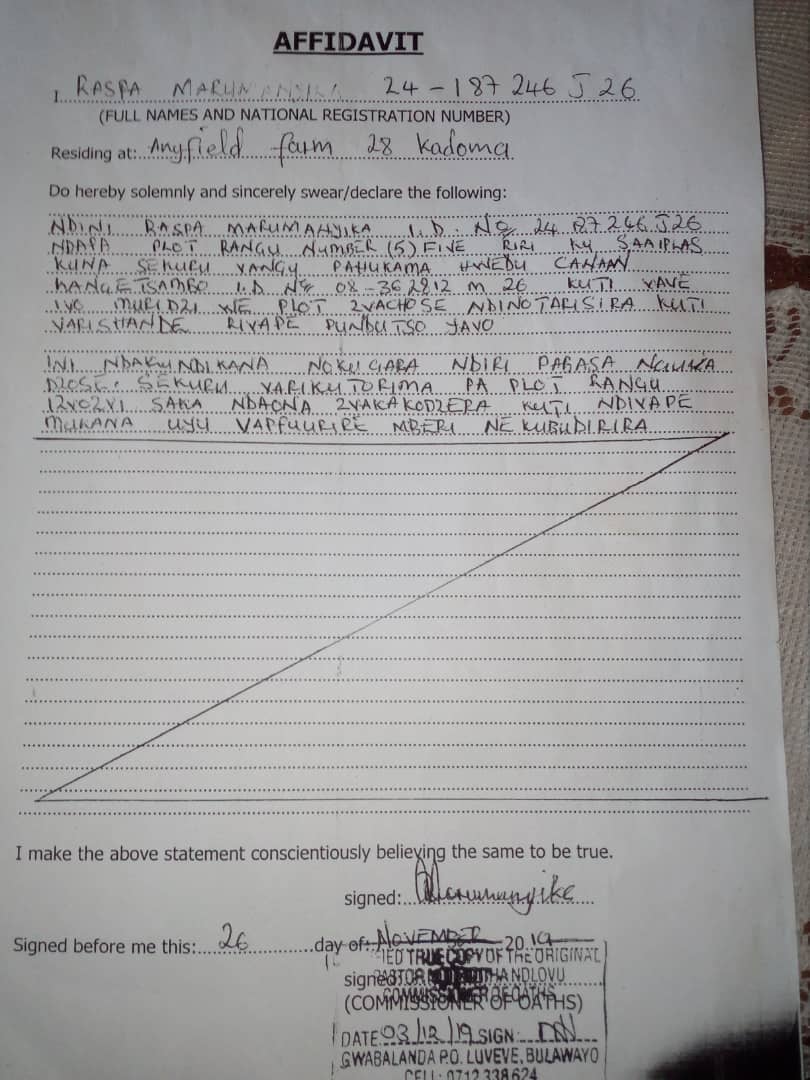 AFFIDAVIT
I RASPA MARUMANYIKA 24-187 246 J 26
(FULL NAMES AND NATIONAL REGISTRATION NUMBER)
Residing at: Anyfield farm 28 Kadoma
Do hereby solemnly and sincerely swear/declare the following:
NDINI RASPA MARUMANYIKA I.D. No 24 87 246 J26
NDAPA PLOT RANGU NUMBER (5) FIVE RIRI KU
KUNA SEKURU VANGU PAHUKAMA HWEDU CANAAN
I.D No 08-362812 M 26 KUTI VAVE
IVO MURIDZI WE PLOT ZVACHOSE NDINOTARISIRA KUTI
VARISHANDE RIVAPE PUNDUTSO YAVO
INI NDAKUNDIKANA NOKUGARA NDIRI PABASA NGUVA
DZOSE. SEKURU VARIKUTORIMA PA PLOT RANGU
IZVOZVI SAKA NDAONA ZVAKAKODZERA KUTI NDIVAPE
MUKANA UYU VAPFUURIRE MBERI NE KUBUDIRIRA
I make the above statement conscientiously believing the same to be true.
signed: Marumanyike
Signed before me this: 26 day of: NOVEMBER 2019
TRUE COPY OF THE ORIGINAL
signed: PASTOR NDLOVU
(COMMISSIONER OF OATHS)
COMMISSIONER OF OATHS
DATE 03/12/19 SIGN
GWABALANDA P.O. LUVEVE, BULAWAYO
CELL: 0712 338 624